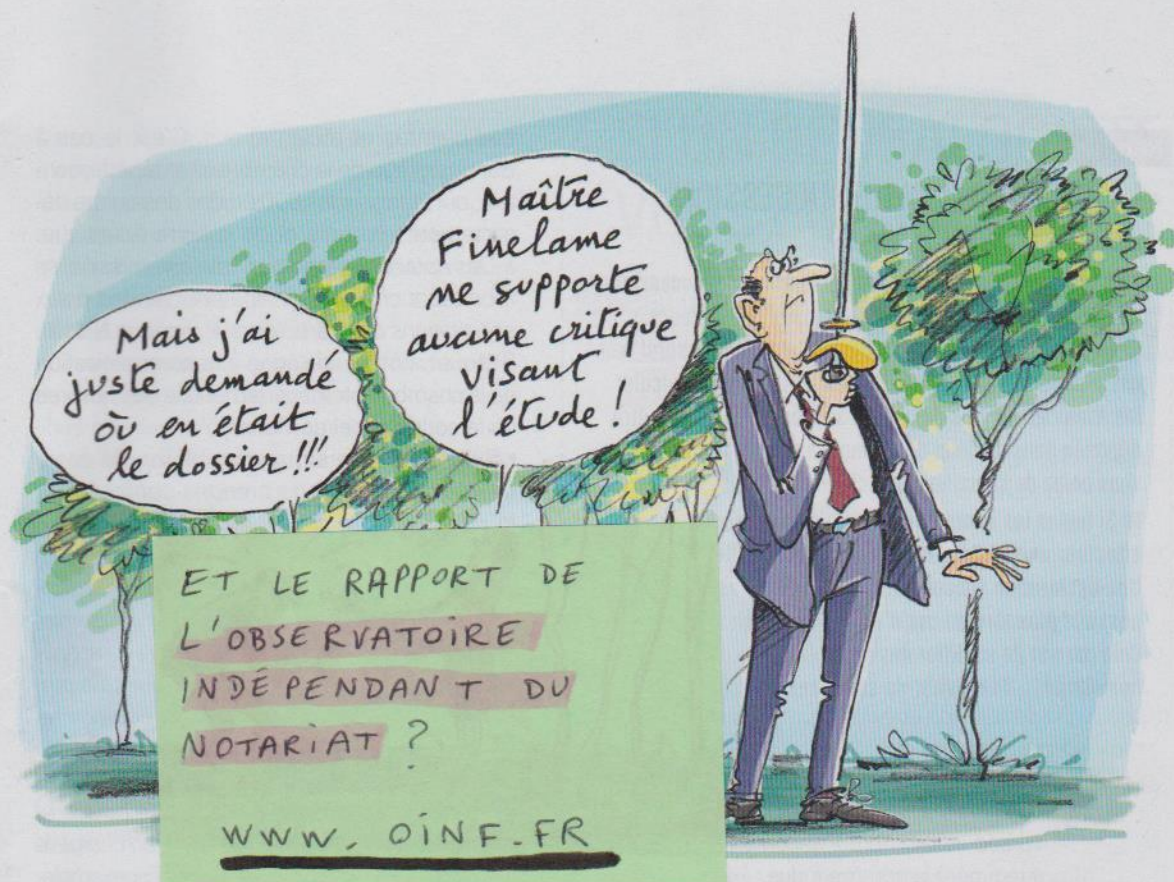 Mais j'ai
juste demandé
où en était
le dossier !!!
Maître
Finelame
ne supporte
aucune critique
visant
l'étude !
ET LE RAPPORT DE
L'OBSERVATOIRE
INDÉPENDANT DU
NOTARIAT ?
WWW. OINF-FR